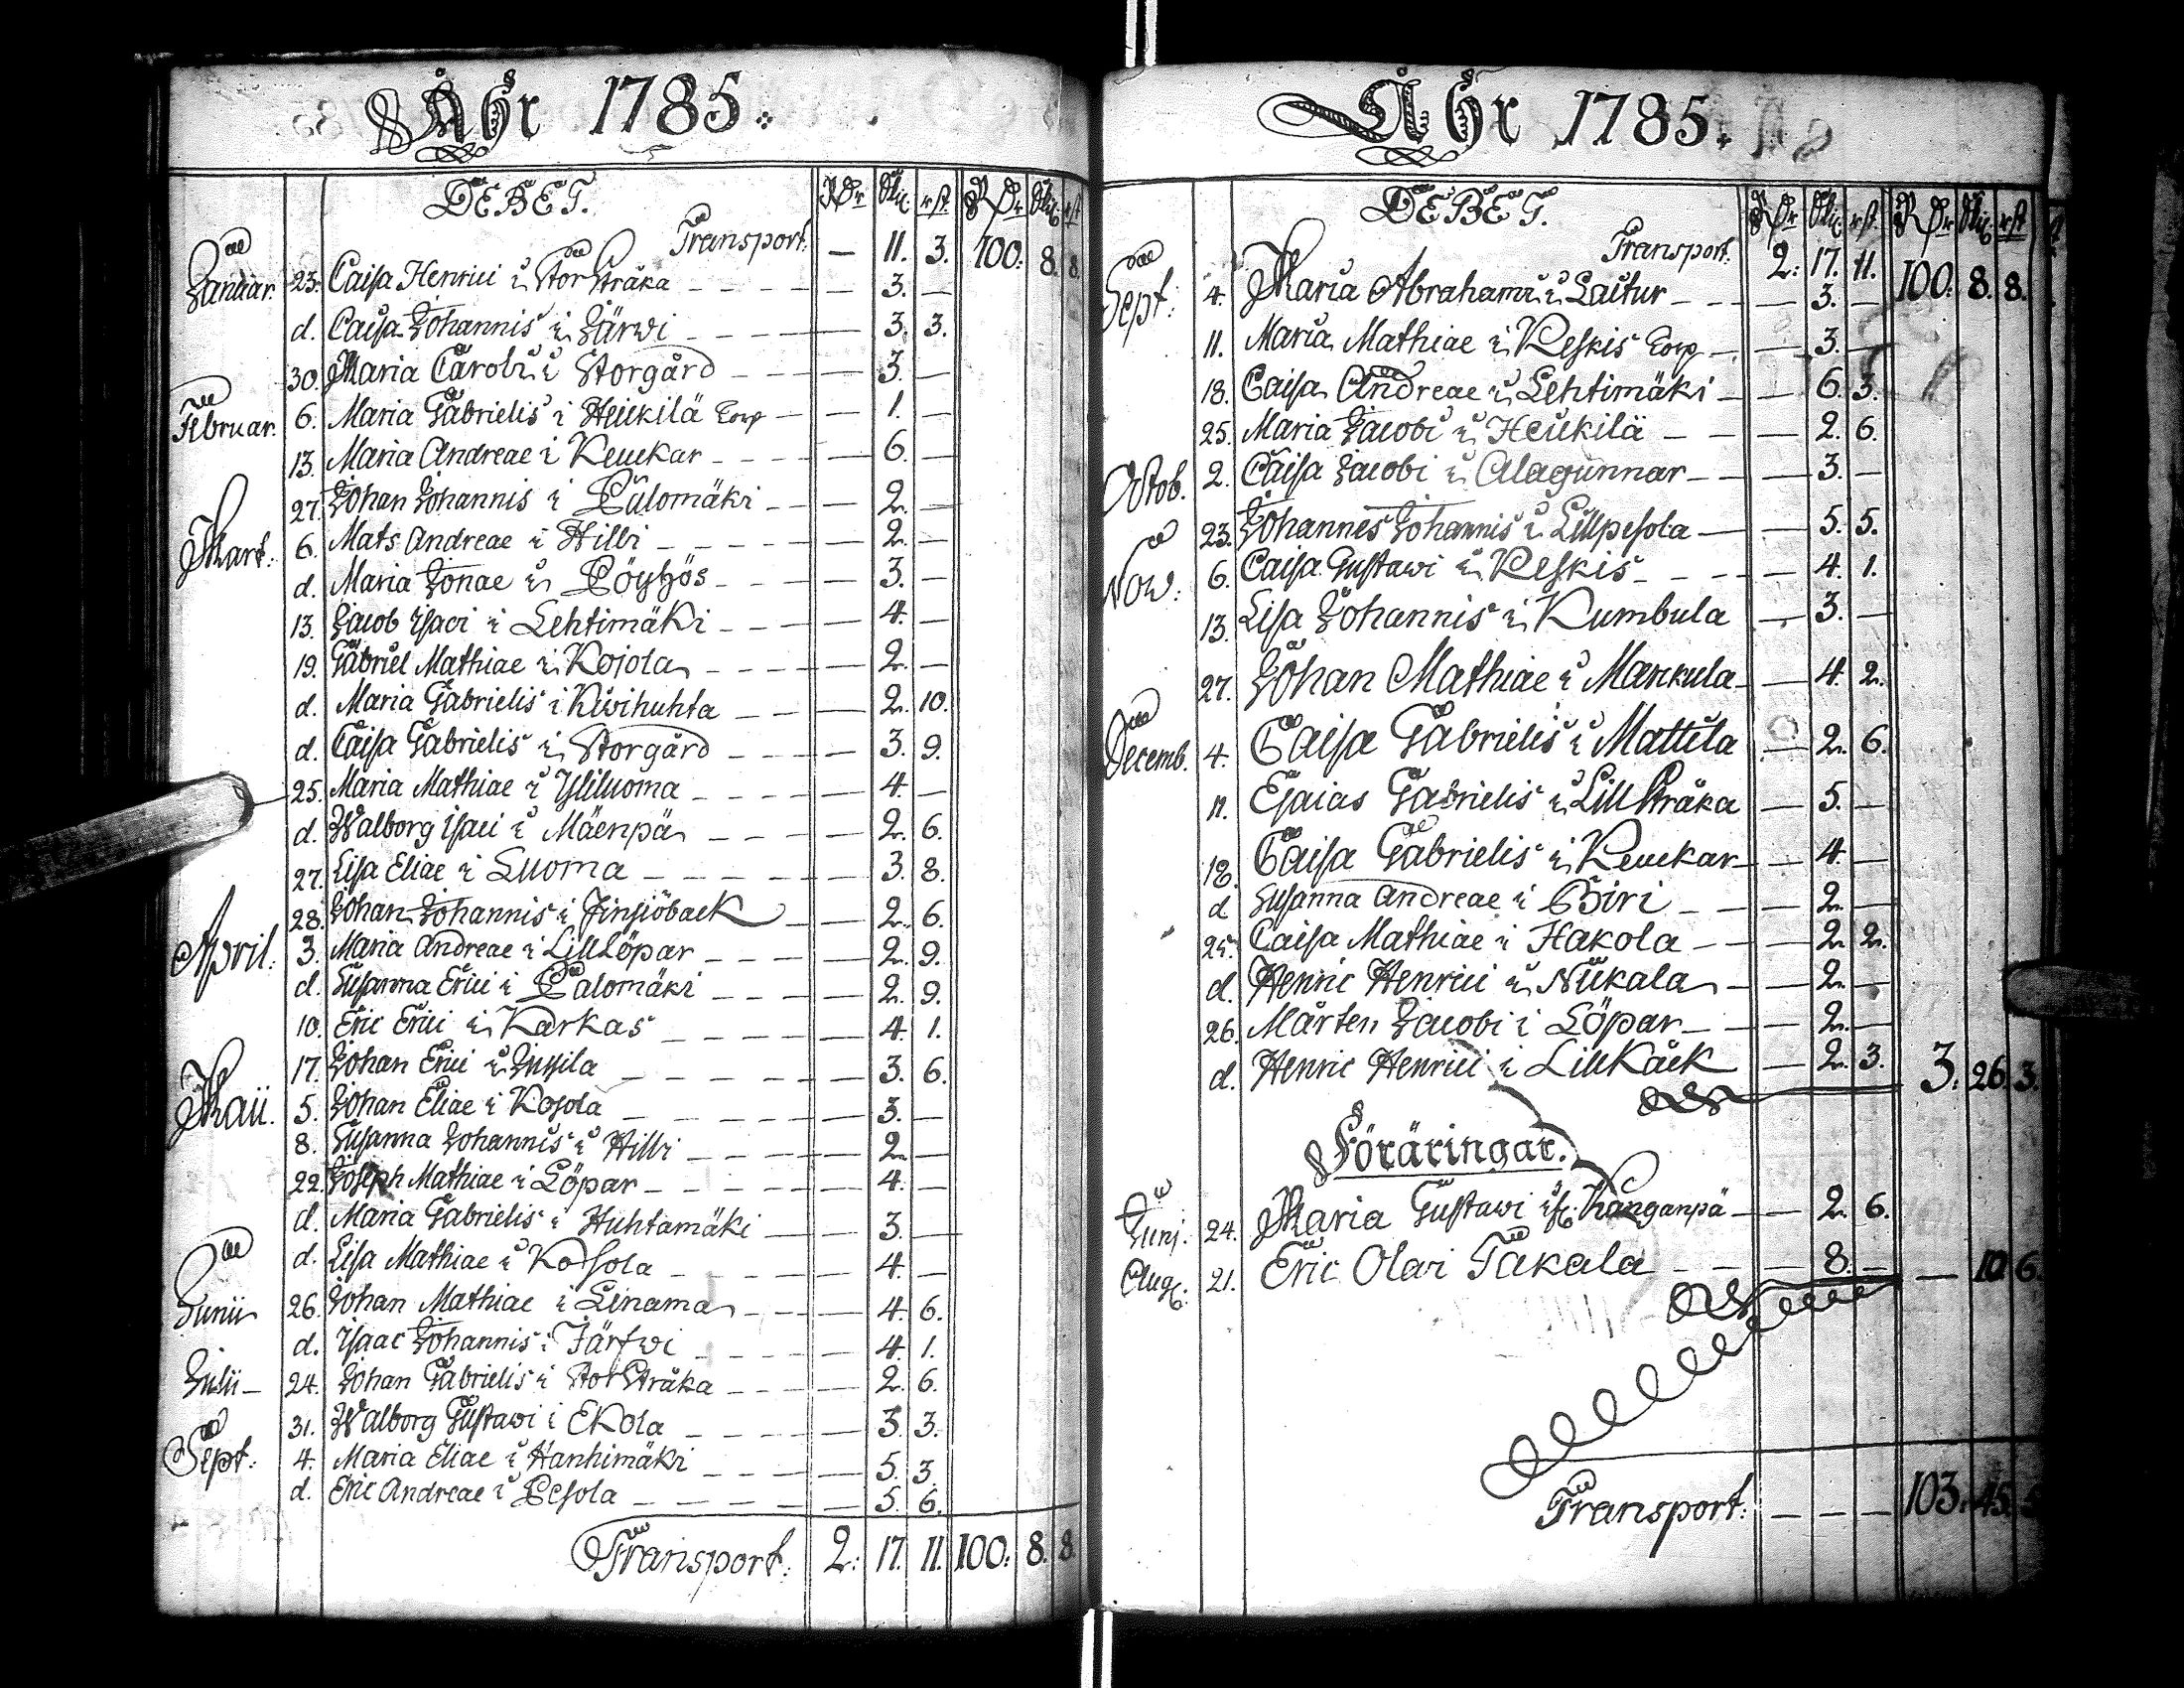 Åhr 1785.
DEBET. RDr Skil. rst. RDr Skil. rst
Transport. — 11. 3. 100. 8. 8.
Januar. 23. Caisa Henrici i StorStråka — 3. —
d. Caisa Johannis i Järwi — 3. 3.
30. Maria Caroli i Storgård — 3. —
Februar. 6. Maria Gabrielis i Heikilä — 1. —
13. Maria Andreae i Keuckar — 6. —
27. Johan Johannis i Palomäki — 2. —
Mart. 6. Mats Andreae i Hilli — 2. —
d. Maria Jonae i Pöyhös — 3. —
13. Jacob Isaci i Lehtimäki — 4. —
19. Gabriel Mathiae i Kojola — 2. —
d. Maria Gabrielis i Kiwihuhta — 2. 10.
d. Caisa Gabrielis i Storgård — 3. 9.
25. Maria Mathiae i Yliluoma — 4. —
d. Walborg Isaci i Mäenpä — 2. 6.
27. Lisa Eliae i Luoma — 3. 8.
28. Johan Johannis i Finsiöback — 2. 6.
April. 3. Maria Andreae i LillLöpar — 2. 9.
d. Susanna Erici i Palomäki — 2. 9.
10. Eric Erici i Karkas — 4. 1.
17. Johan Erici i Jussila — 3. 6.
Maii. 5. Johan Eliae i Kosola — 3. —
8. Susanna Johannis i Hilli — 2. —
22. Joseph Mathiae i Löpar — 4. —
d. Maria Gabrielis i Huhtamäki — 3. —
d. Lisa Mathiae i Kosola — 4. —
Junii 26. Johan Mathiae i Linama — 4. 6.
d. Isaac Johannis i Järfwi — 4. 1.
Julii 24. Johan Gabrielis i StorStråka — 2. 6.
31. Walborg Gustawi i Ekola — 3. 3.
Sept. 4. Maria Eliae i Hanhimäki — 5. 3.
d. Eric Andreae i Pesola — 5. 6.
Transport. 2. 17. 11. 100. 8. 8.
Åhr 1785.
DEBET. RDr Skil. rst. RDr Skil. rst
Transport. 2. 17. 11. 100. 8. 8.
Sept. 4. Maria Abrahami i Laitur — 3. —
11. Maria Mathiae i Keskis — 3. —
18. Caisa Andreae i Lehtimäki — 6. 3.
25. Maria Jacobi i Heikilä — 2. 6.
Octob. 2. Caisa Jacobi i Alagunnar — 3. —
23. Johannes Johannis i Lillpesola — 5. 5.
Now. 6. Caisa Gustawi i Keskis — 4. 1.
13. Lisa Johannis i Kumbula — 3. —
27. Johan Mathiae i Marckula — 4. 2.
Decemb. 4. Caisa Gabrielis i Mattila — 2. 6.
11. Esaias Gabrielis i LillStråka — 5. —
18. Caisa Gabrielis i Keuckar — 4. —
d Susanna Andreae i Biri — 2. —
25. Caisa Mathiae i Hakola — 2. 2.
d. Henric Henrici i Niikala — 2. —
26. Mårten Jacobi i Löpar — 2. —
d. Henric Henrici i LillKåck — 2. 3. 3. 26. 3.
Föräringar.
Junj. 24. Maria Gustawi Kånganpä — 2. 6.
Aug. 21. Eric Olai Takala — 8. — — 10. 6.
Transport. — — — 103. 45.